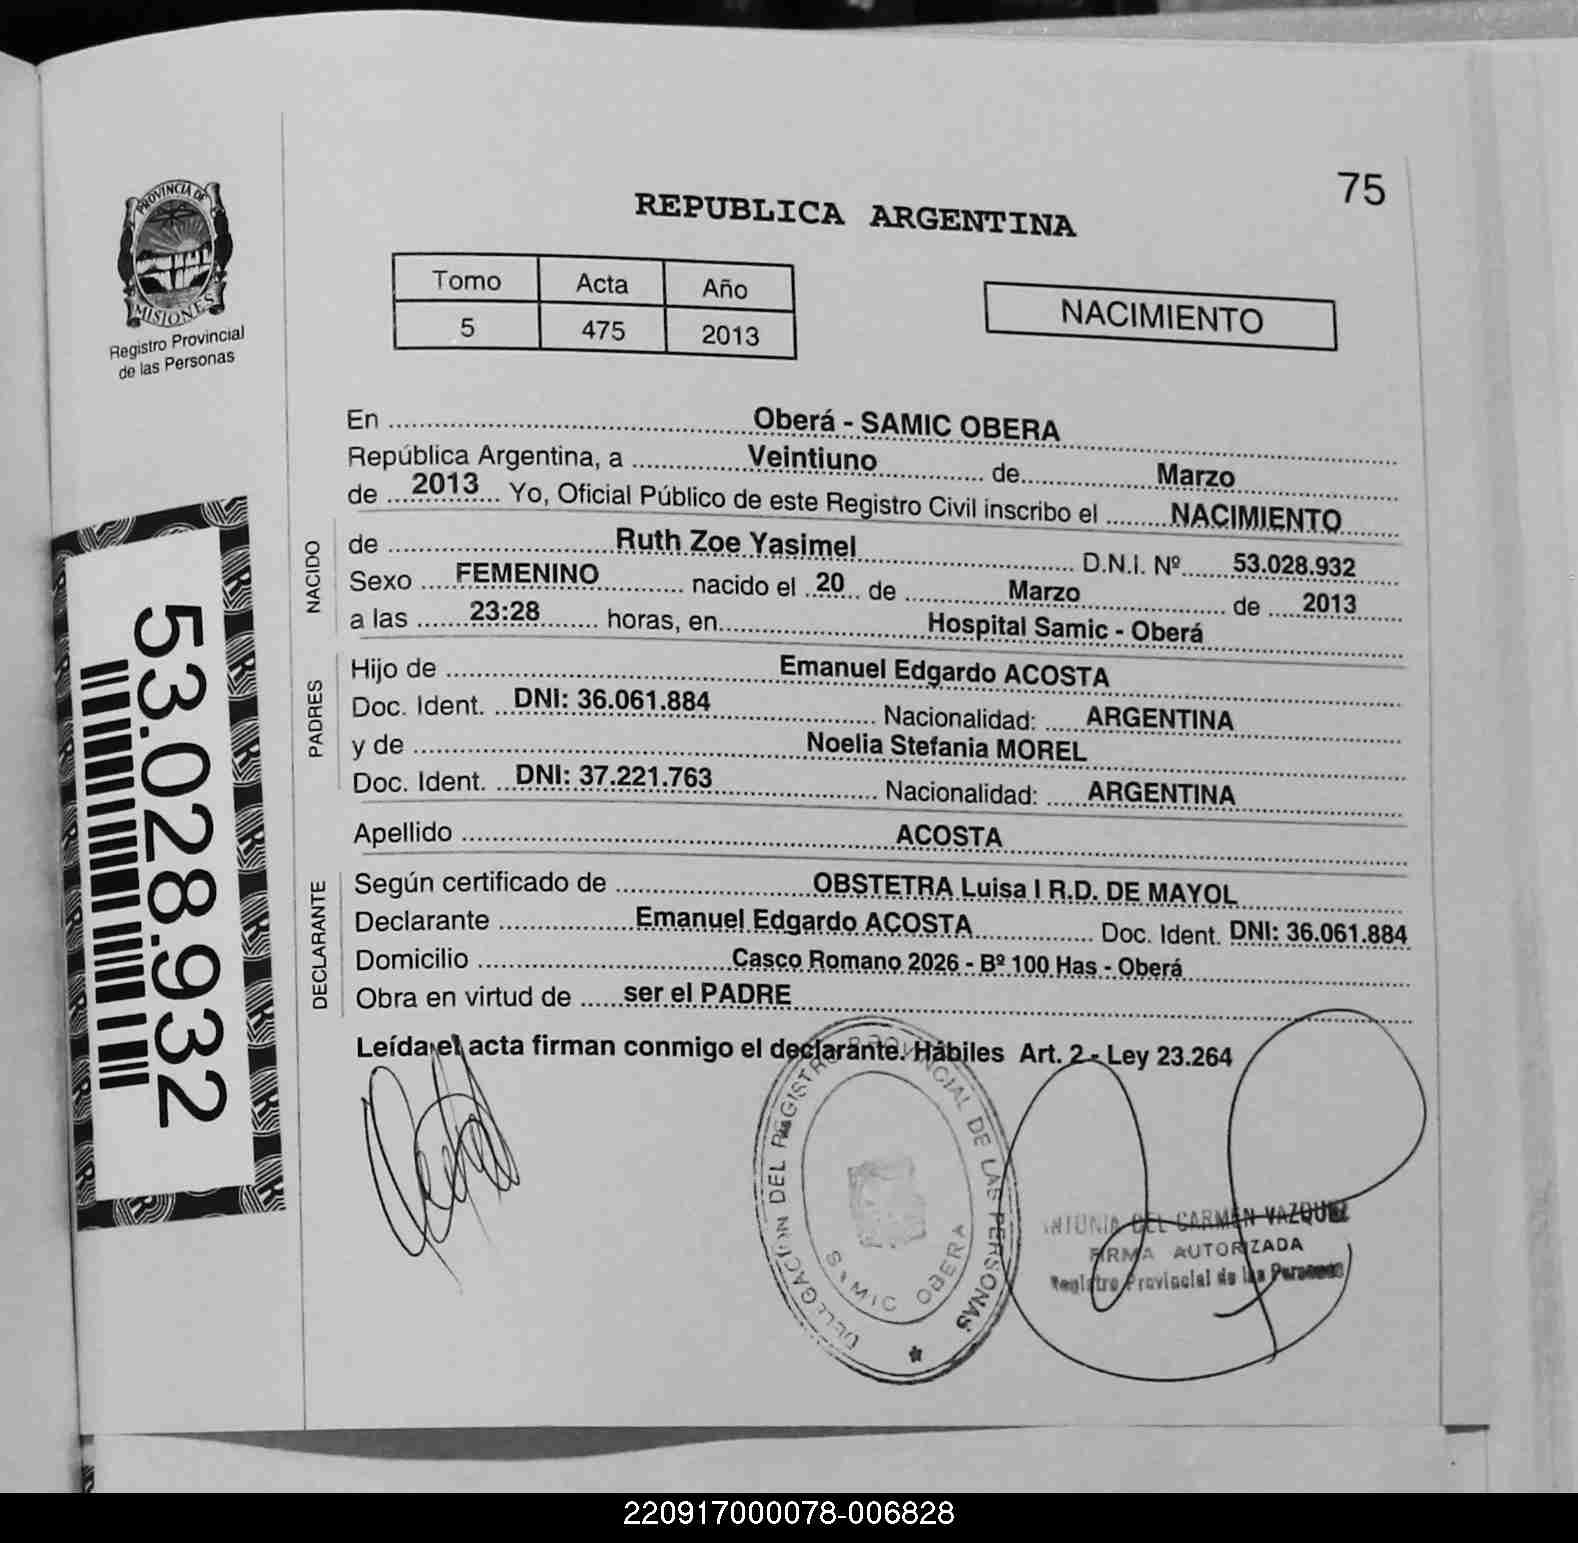 PROVINCIA DE
MISIONES
Registro Provincial
de las Personas
75
REPUBLICA ARGENTINA
Tomo Acta Año
5 475 2013
NACIMIENTO
En Oberá - SAMIC OBERA
República Argentina, a Veintiuno de Marzo
de 2013 Yo, Oficial Público de este Registro Civil inscribo el NACIMIENTO
NACIDO
de Ruth Zoe Yasimel D.N.I. Nº 53.028.932
Sexo FEMENINO nacido el 20 de Marzo de 2013
a las 23:28 horas, en Hospital Samic - Oberá
PADRES
Hijo de Emanuel Edgardo ACOSTA
Doc. Ident. DNI: 36.061.884 Nacionalidad: ARGENTINA
y de Noelia Stefania MOREL
Doc. Ident. DNI: 37.221.763 Nacionalidad: ARGENTINA
Apellido ACOSTA
DECLARANTE
Según certificado de OBSTETRA Luisa I R.D. DE MAYOL
Declarante Emanuel Edgardo ACOSTA Doc. Ident. DNI: 36.061.884
Domicilio Casco Romano 2026 - Bº 100 Has - Oberá
Obra en virtud de ser el PADRE
Leída el acta firman conmigo el declarante. Hábiles Art. 2 - Ley 23.264
53.028.932
DELEGACION DEL REGISTRO PROVINCIAL DE LAS PERSONAS
SAMIC OBERA
ANTONIA DEL CARMEN VAZQUEZ
FIRMA AUTORIZADA
Registro Provincial de las Personas
220917000078-006828